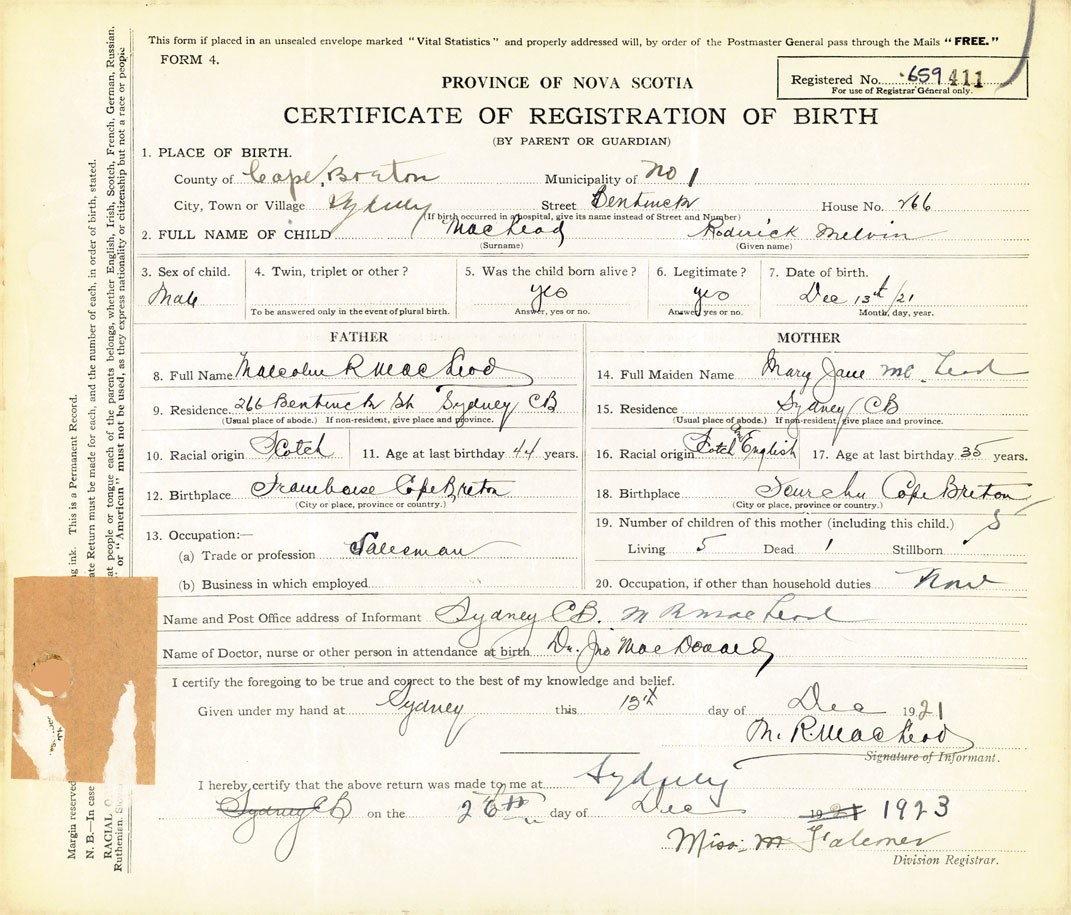 This form if placed in an unsealed envelope marked "Vital Statistics" and properly addressed will, by order of the Postmaster General pass through the Mails "FREE."
FORM 4.
Registered No. 659 411
For use of Registrar General only.
PROVINCE OF NOVA SCOTIA
CERTIFICATE OF REGISTRATION OF BIRTH
(BY PARENT OR GUARDIAN)
1. PLACE OF BIRTH.
County of Cape Breton Municipality of No 1
City, Town or Village Sydney Street Bentinck House No. 266
(If birth occurred in a hospital, give its name instead of Street and Number)
2. FULL NAME OF CHILD MacLeod Roderick Melvin
(Surname) (Given name)
3. Sex of child. 4. Twin, triplet or other? 5. Was the child born alive? 6. Legitimate? 7. Date of birth.
Male yes yes Dec 13th/21
To be answered only in the event of plural birth. Answer, yes or no. Answer, yes or no. Month, day, year.
FATHER MOTHER
8. Full Name Malcolm R MacLeod 14. Full Maiden Name Mary Jane Mc Leod
9. Residence 266 Bentinck St Sydney CB 15. Residence Sydney CB
(Usual place of abode.) If non-resident, give place and province. (Usual place of abode.) If non-resident, give place and province.
10. Racial origin Scotch 11. Age at last birthday 44 years. 16. Racial origin Scotch and English 17. Age at last birthday 35 years.
12. Birthplace Framboise Cape Breton 18. Birthplace Fourchu Cape Breton
(City or place, province or country.) (City or place, province or country.)
19. Number of children of this mother (including this child.) 5
13. Occupation:—
(a) Trade or profession Salesman Living 5 Dead 1 Stillborn
(b) Business in which employed 20. Occupation, if other than household duties None
Name and Post Office address of Informant Sydney CB. M R MacLeod
Name of Doctor, nurse or other person in attendance at birth Dr. Jno MacDonald
I certify the foregoing to be true and correct to the best of my knowledge and belief.
Given under my hand at Sydney this 13th day of Dec 1921
M. R. MacLeod
Signature of Informant.
I hereby certify that the above return was made to me at Sydney
Sydney CB on the 26th day of Dec 1921 1923
Miss M Falconer
Division Registrar.
Margin reserved
ng ink. This is a Permanent Record.
N. B.—In case
ate Return must be made for each, and the number of each, in order of birth, stated.
RACIAL
at people or tongue each of the parents belongs, whether English, Irish, Scotch, French, German, Russian,
Ruthenian,
or "American" must not be used, as they express nationality or citizenship but not a race or people